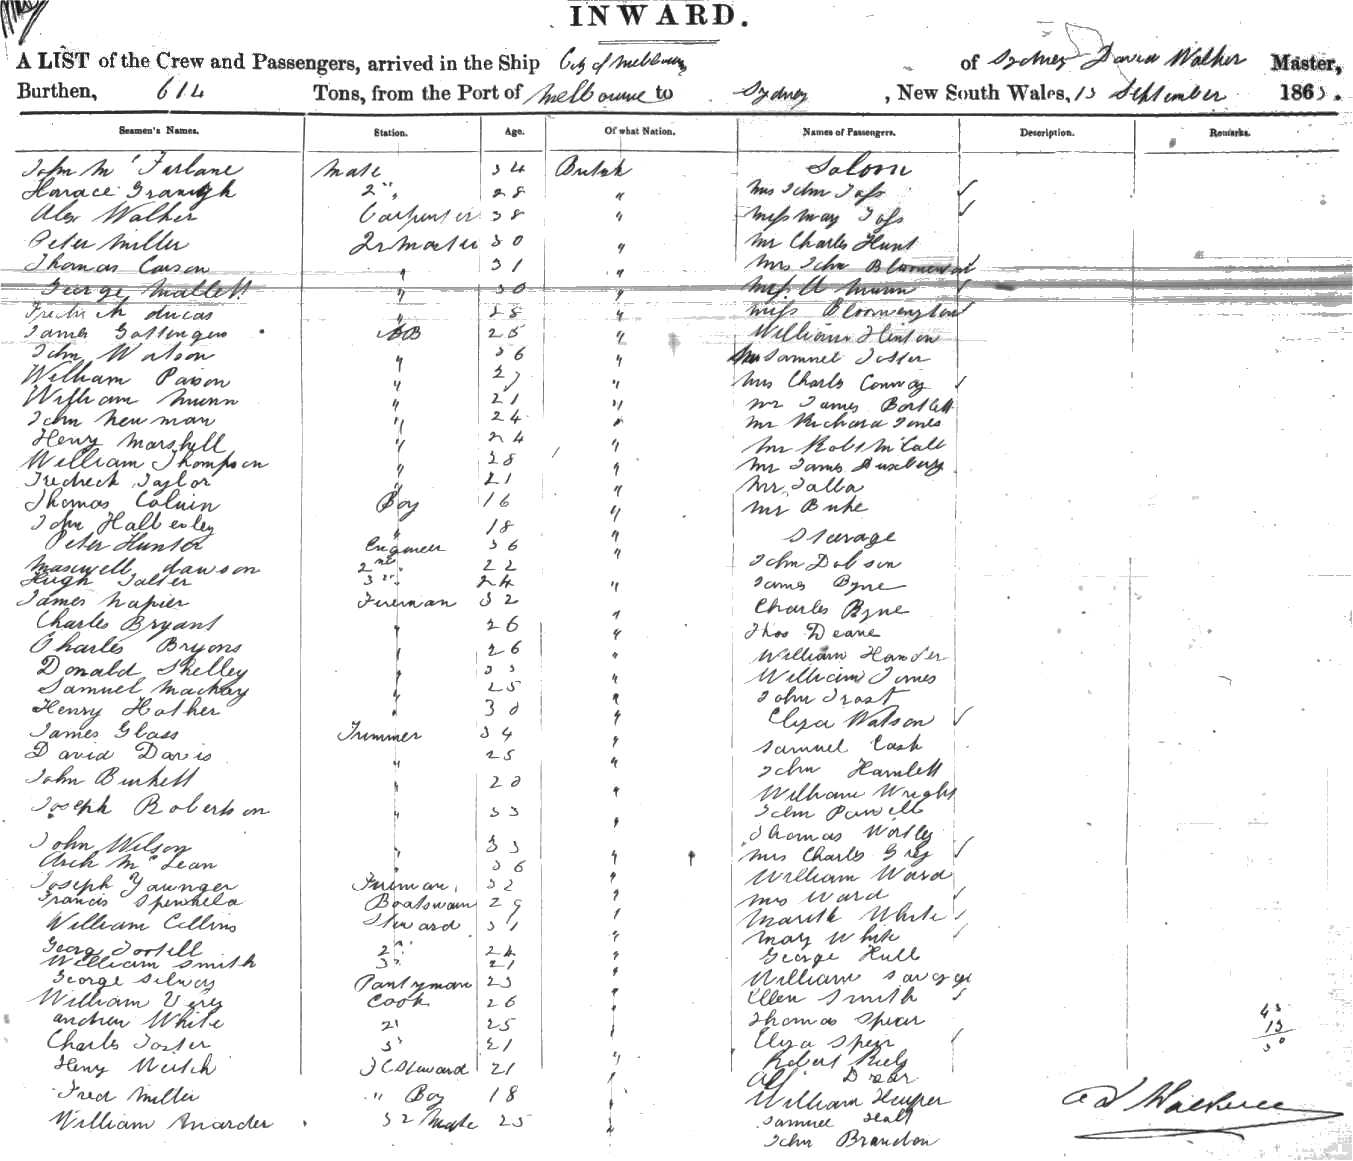 INWARD.
A LIST of the Crew and Passengers, arrived in the Ship City of Melbourne of Sydney David Walker Master,
Burthen, 614 Tons, from the Port of Melbourne to Sydney, New South Wales, 13 September 186
Seamen's Names. Station. Age. Of what Nation. Names of Passengers. Description. Remarks.
John Mc Farlane Mate 34 British Saloon
Horace 2nd 28 " Mrs John ✓
Alex Walker Carpenter 38 " Miss May ✓
Peter Miller Qr Master 30 " Mr Charles Hunt
Thomas Carson " 31 " Mrs John ✓
George Mallett " 30 " Miss A Munn ✓
Lucas " 28 " Miss Bloomington ✓
James AB 25 " William Hinton
John Watson " 36 " Samuel Foster
William " 27 " Mrs Charles Conway ✓
William Munn " 21 " Mr James Bartlett
John Newman " 24 " Mr Richard Jones
Henry Marshall " 24 " Mr Robt McCall
William Thompson " 28 " Mr James
Fredrick Taylor " 21 " Mr
Thomas Colvin Boy 16 " Mr
John " 18 Steerage
Peter Hunter Engineer 36 "
Maxwell Dawson 2nd 22 John Dobson
Hugh 3rd 24 " James Byne
James Napier Fireman 32 Charles Byne
Charles Bryant " 26 " Thos Deane
Charles Bryons " 26 " William
Donald Shelley " 33 " William Jones
Samuel Mackay " 25 " John Frost
Henry " 30 " Eliza Watson ✓
James Glass Trimmer 34 " Samuel Cash
David Davis " 25 " John Hamlett
John Burkett " 20 " William Wright
Joseph Robertson " 33 " John Powell
Thomas Wortley
John Wilson " 33 Mrs Charles Grey ✓
Arch McLean " 36 " William Ward
Joseph Younger Fireman 32 " Mrs Ward ✓
Francis Boatswain 29 " White ✓
William Collins Steward 31 " Mary White ✓
George 2nd 24 " George Hull
William Smith 3rd 21 " William Savage
George Pantryman 23 " Ellen Smith ✓
William Cook 26 " Thomas Spear 43
Andrew White 2 25 " Eliza Spear ✓ 13
Charles Foster 3 21 " Robert 30
Henry Steward 21 "
Fred Miller " Boy 18 " William
William 2 Mate 25 " Samuel
John Brandon